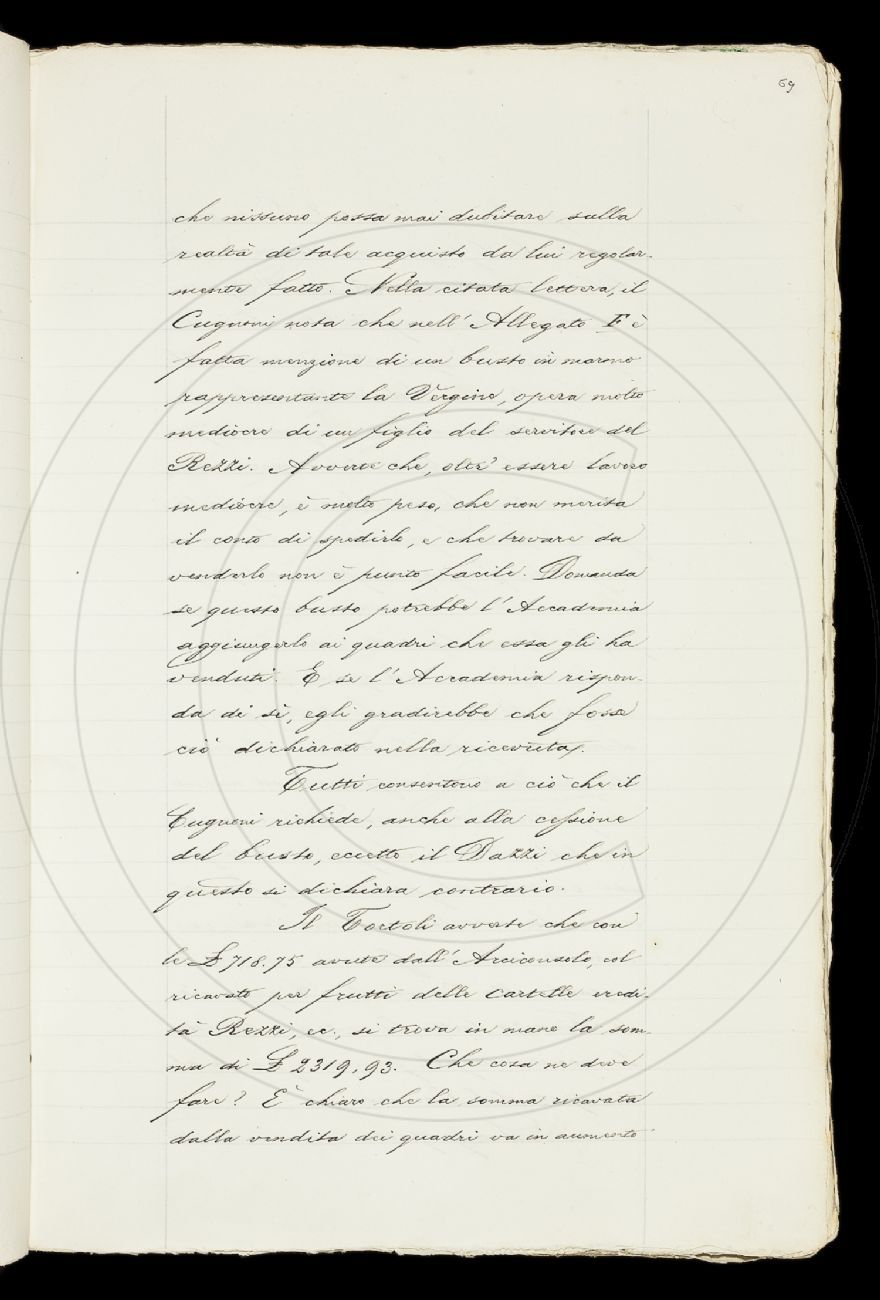 69
che nissuno possa mai dubitare sulla
realtà di tale acquisto da lui regolar-
mente fatto. Nella citata lettera, il
Cugnoni nota che nell' Allegato F è
fatta menzione di un busto in marmo
rappresentante la Vergine, opera molto
mediocre di un figlio del servitore del
Rezzi. Avverte che, oltr' essere lavoro
mediocre, è molto peso, che non merita
il conto di spedirlo, e che trovare da
venderlo non è punto facile. Domanda
se questo busto potrebbe l' Accademia
aggiungerlo ai quadri che essa gli ha
venduti. E se l' Accademia rispon-
da di sì, egli gradirebbe che fosse
ciò dichiarato nella ricevuta.
Tutti consentono a ciò che il
Cugnoni richiede, anche alla cessione
del busto, eccetto il Dazzi che in
questo si dichiara contrario.
Il Tortoli avverte che con
le £ 718.75 avute dall' Arciconsolo, col
ricavato per frutti delle cartelle eredi-
tà Rezzi, ec., si trova in mano la som-
ma di £ 2319,93. Che cosa ne deve
fare? È chiaro che la somma ricavata
dalla vendita dei quadri va in aumento